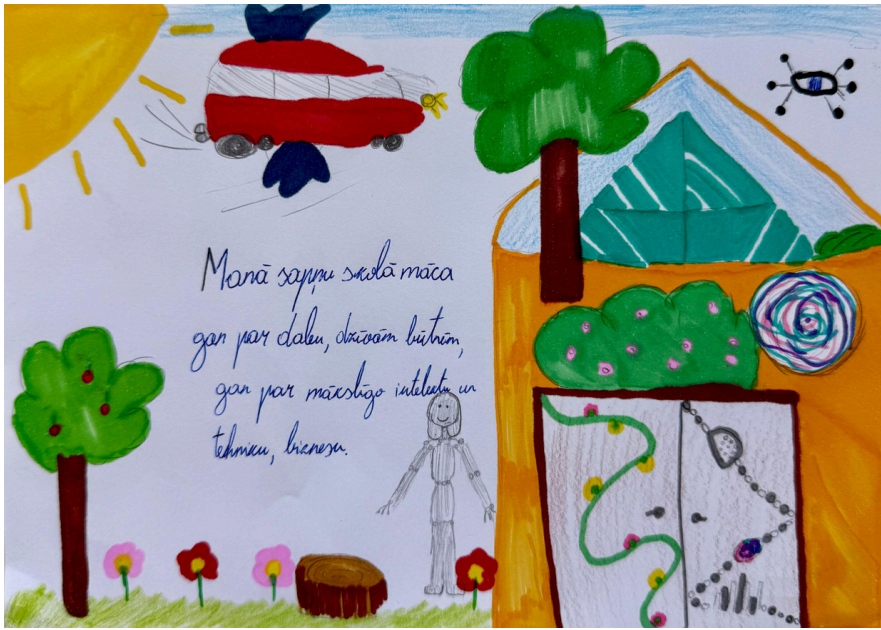 Manā sapņu skolā māca
gan par dabu, dzīvām būtnēm,
gan par mākslīgo intelektu un
tehniku, biznesu.